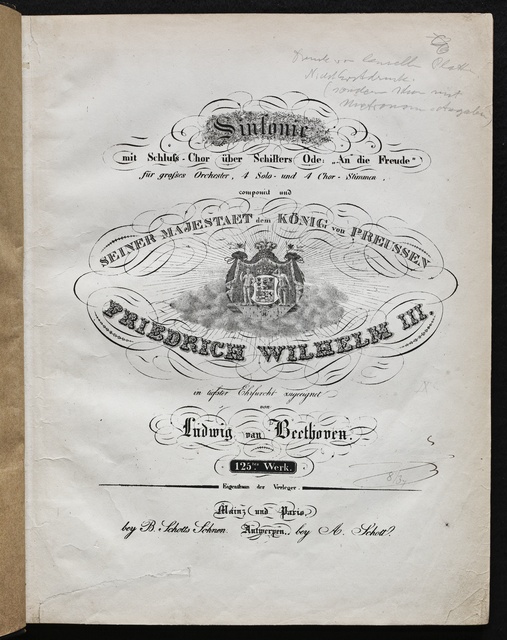 Sinfonie
mit Schluſs-Chor über Schillers Ode: „An die Freude"
für großes Orchester, 4 Solo- und 4 Chor-Stimmen,
componirt und
SEINER MAJESTAET dem KÖNIG von PREUSSEN
FRIEDRICH WILHELM III.
in tiefster Ehrfurcht zugeeignet
von
Ludwig van Beethoven.
125tes Werk.
Eigenthum der Verleger.
Mainz und Paris,
bey B. Schotts Söhnen. Antwerpen, bey A. Schott.